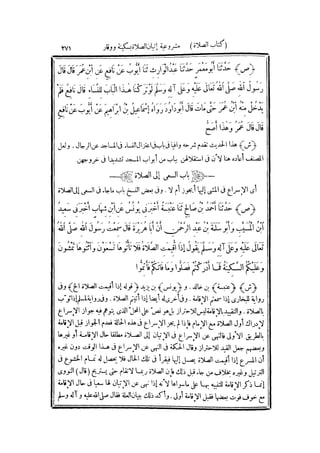 (كتاب الصلاة) مشروعية إتيان الصلاة بسكينة ووقار ٢٧١
(ص) حَدَّثَنَا أَبُو مَعْمَرٍ حَدَّثَنَا عَبْدُ الْوَارِثِ ثَنَا أَيُّوبُ عَنْ نَافِعٍ عَنِ ابْنِ عُمَرَ قَالَ قَالَ
رَسُولُ اللهِ صَلَّى اللهُ تَعَالَى عَلَيْهِ وَعَلَى آلِهِ وَسَلَّمَ لَوْ تَرَكْنَا هَذَا الْبَابَ لِلنِّسَاءِ قَالَ نَافِعٌ فَلَمْ
يَدْخُلْ مِنْهُ ابْنُ عُمَرَ حَتَّى مَاتَ قَالَ أَبُو دَاوُدَ رَوَاهُ إِسْمَاعِيلُ بْنُ إِبْرَاهِيمَ عَنْ أَيُّوبَ عَنْ نَافِعٍ
قَالَ قَالَ عُمَرُ وَهَذَا أَصَحُّ
(ش) هذا الحديث تقدم شرحه وافيا في باب في اعتزال النساء في المساجد عن الرجال. ولعل
المصنف أعاده هنا لأن في استقلالهن بباب من أبواب المسجد تشديدا في خروجهن
باب السعى إلى الصلاة
أى الإسراع فى المشى إليها أيجوز أم لا. وفى بعض النسخ باب ماجاء فى السعى إلى الصلاة
(ص) حَدَّثَنَا أَحْمَدُ بْنُ صَالِحٍ ثَنَا عَنْبَسَةُ أَخْبَرَنِى يُونُسُ عَنِ ابْنِ شِهَابٍ أَخْبَرَنِى سَعِيدُ
ابْنُ الْمُسَيَّبِ وَأَبُو سَلَمَةَ بْنُ عَبْدِ الرَّحْمَنِ أَنَّ أَبَا هُرَيْرَةَ قَالَ سَمِعْتُ رَسُولَ اللهِ صَلَّى اللهُ
تَعَالَى عَلَيْهِ وَعَلَى آلِهِ وَسَلَّمَ يَقُولُ إِذَا أُقِيمَتِ الصَّلَاةُ فَلَا تَأْتُوهَا تَسْعَوْنَ وَأْتُوهَا تَمْشُونَ
وَعَلَيْكُمُ السَّكِينَةُ فَمَا أَدْرَكْتُمْ فَصَلُّوا وَمَا فَاتَكُمْ فَأَتِمُّوا
(ش) (عنبسة) بن خالد. و (يونس) بن يزيد (قوله إذا أقيمت الصلاة الخ) وفى
رواية للبخارى إذا سمعتم الإقامة. وفى أخرى له أيضا إذا أتيتم الصلاة. وفى رواية لمسلم إذا ثوب
بالصلاة. والتقييد بالإقامة ليس للاحتراز بل هو نص على المحل الذى يتوهم فيه جواز الإسراع
لإدراك أول الصلاة مع الإمام فإذا لم يجز الإسراع فى هذه الحالة فعدم الجواز قبل الإقامة
بالطريق الأولى فالنهى عن الإسراع فى الإتيان إلى الصلاة مطلقا حال الإقامة أو غيرها
وبعضهم جعل القيد للاحتراز وقال الحكمة فى النهى عن الإسراع فى هذا الوقت دون غيره
أن المسرع إذا أقيمت الصلاة يصل إليها فيقرأ فى تلك الحال فلا يحصل له تمام الخشوع فى
الترتيل وغيره بخلاف من جاء قبل ذلك فإن الصلاة ربما لا تقام حتى يستريح (قال) النووى
إنما ذكر الإقامة للتنبيه بها على ماسواها لأنه إذا نهى عن الإتيان لها سعيا فى حال الإقامة
مع خوف فوت بعضها فقبل الإقامة أولى. وأكد ذلك ببيان العلة فقال صلى الله عليه وآله وسلم